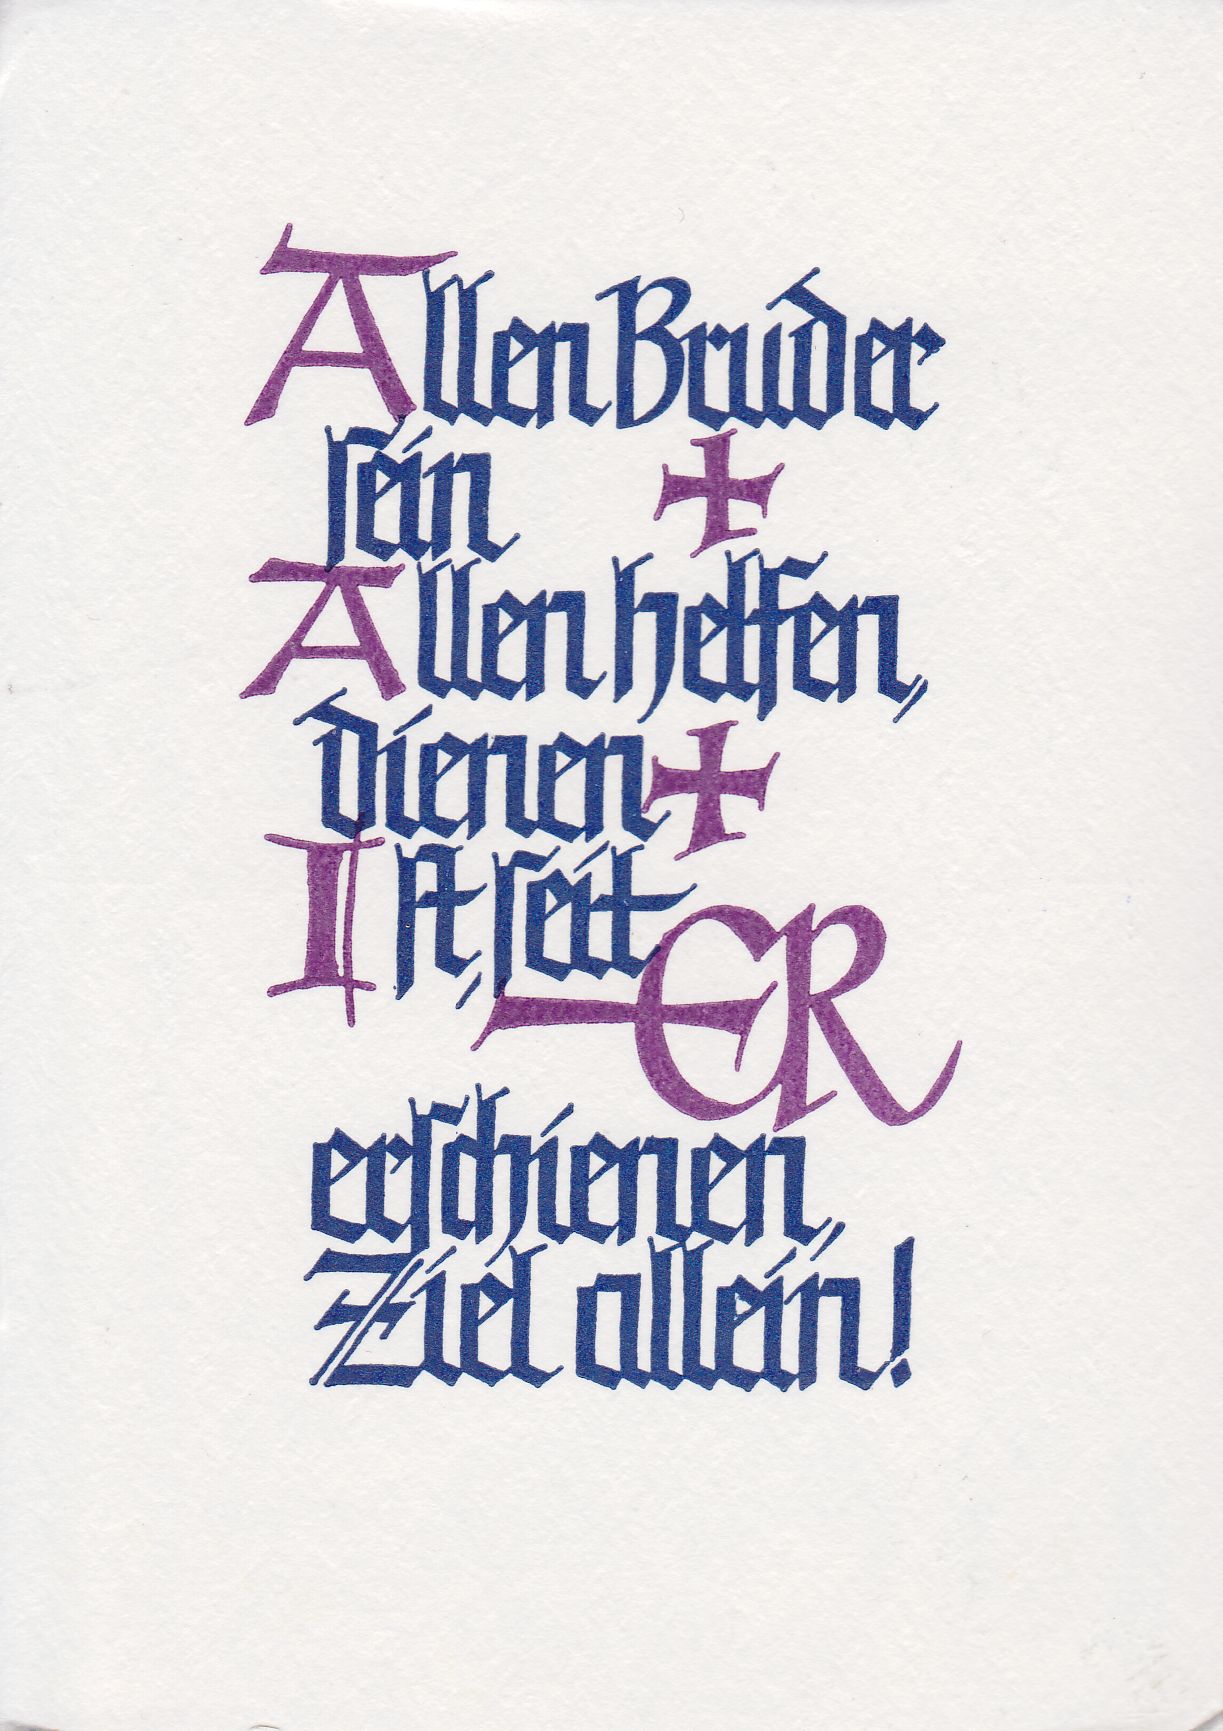 Allen Bruder
sein +
Allen helfen,
dienen +
Ist, seit
ER
erschienen,
Ziel allein!